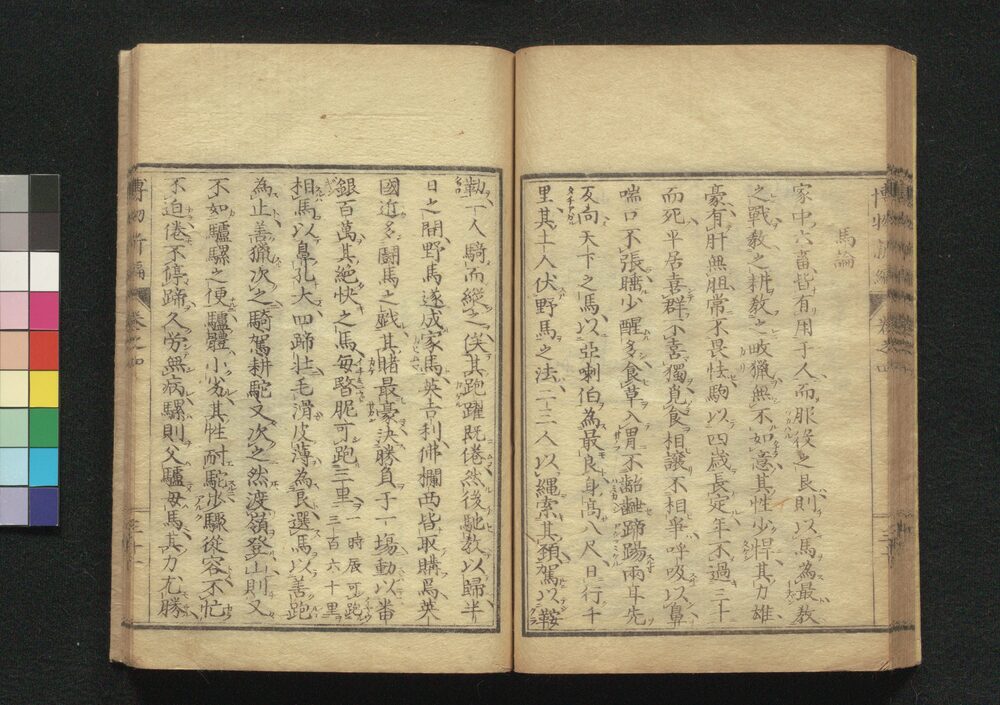 馬論
家中六畜皆有用于人而服役之良則以馬為最教
之戰教之耕教之畋獵無不如意其性少悍其力雄
豪有肝無胆常不畏怯駒以四歲長定年不過三十
而死平居喜群不喜獨覓食相讓不相爭呼吸以鼻
喘口不張睡少醒多食草入胃不齝齝蹄踢兩耳先
反向天下之馬以亞喇伯為最良身高八尺日行千
里其土人伏野馬之法二三人以繩索其頚駕以鞍
勒一人騎而縱之俟其跑躍既倦然後馳教以歸半
日之間野馬遂成家馬英吉利佛欄西皆取購焉英
國近多鬪馬之戯其賭最豪決勝負于一場動以畨
銀百萬其絶快之馬每䀩眤可跑三里一時辰可跑三百六十里
相馬以鼻孔大四蹄壮毛滑皮薄為良選馬以善跑
為止善獵次之騎駕耕駝又次之然渡嶺登山則又
不如驢騾之便驢體小劣其性耐駝沙驟從容不忙
不迫倦不停蹄久労無病騾則父驢毋馬其力尤勝
博物新編 卷之四